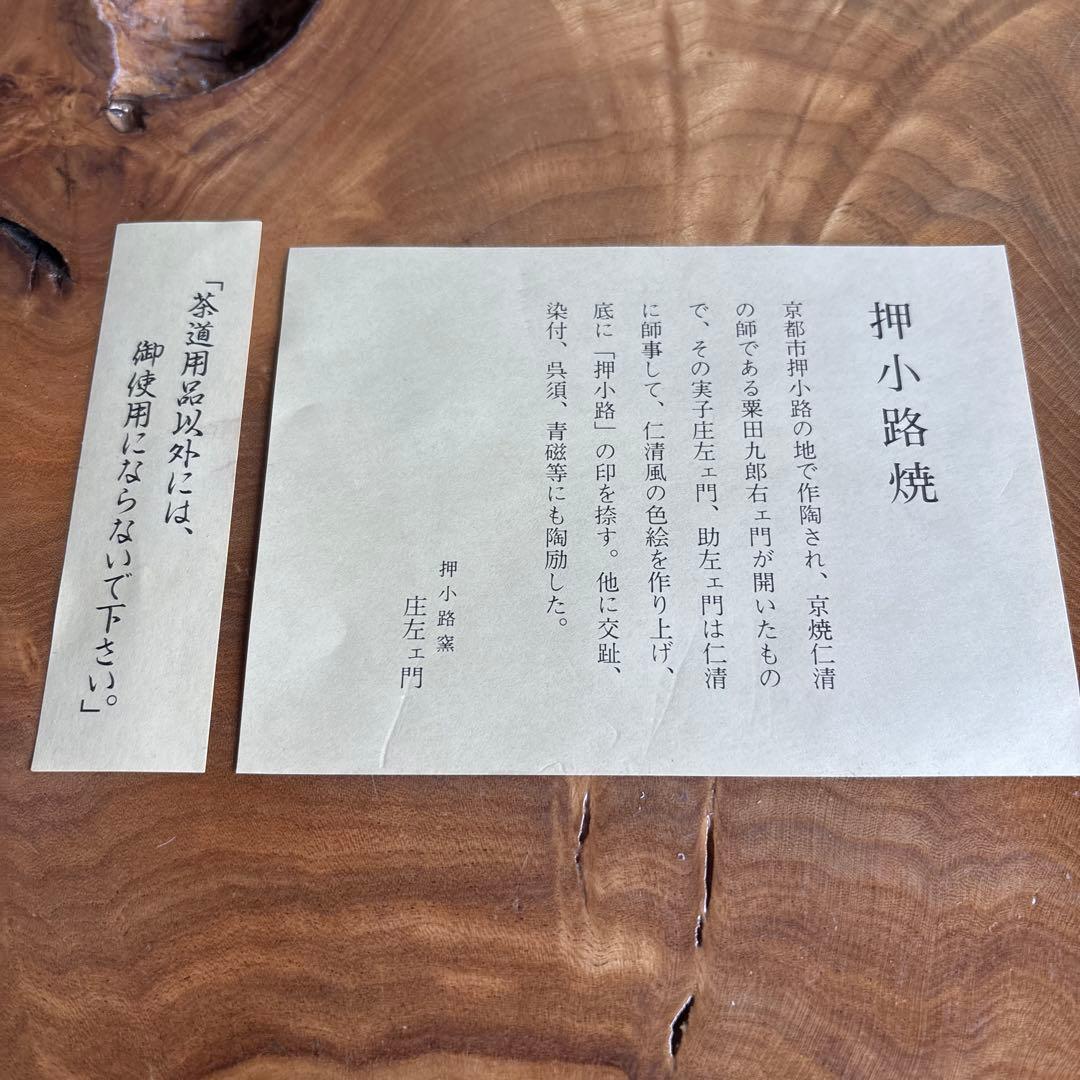 押小路焼
京都市押小路の地で作陶され、京焼仁清
の師である粟田九郎右ェ門が開いたもの
で、その実子庄左ェ門、助左ェ門は仁清
に師事して、仁清風の色絵を作り上げ、
底に「押小路」の印を捺す。他に交趾、
染付、呉須、青磁等にも陶励した。
押小路窯
庄左ェ門
「茶道用品以外には、
御使用にならないで下さい。」